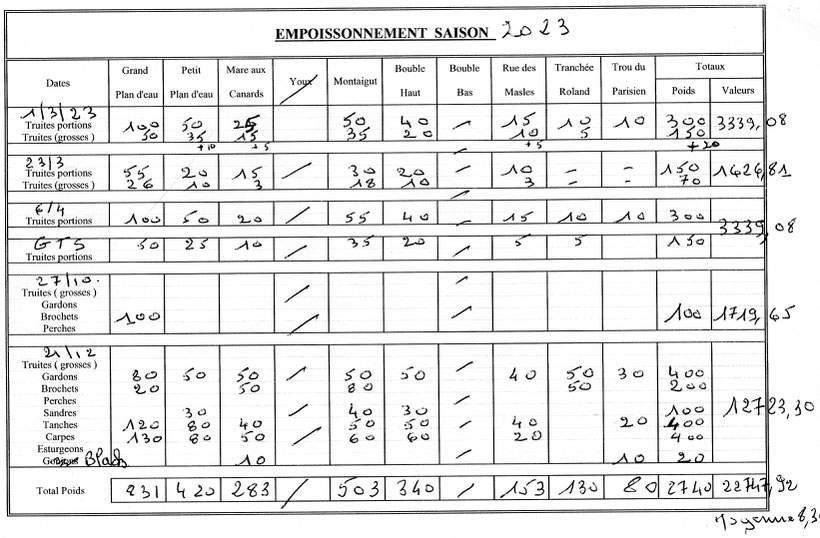 EMPOISSONNEMENT SAISON 2023
Dates Grand Plan d'eau Petit Plan d'eau Mare aux Canards Youx Montaigut Bouble Haut Bouble Bas Rue des Masles Tranchée Roland Trou du Parisien Totaux Poids Valeurs
1/3/23
Truites portions 100 50 25 50 40 15 10 10 300 3339,08
Truites (grosses) 50 35 15 35 20 10 5 150
+10 +5 +5 +20
23/3
Truites portions 55 20 15 30 20 10 - - 150 1626,81
Truites (grosses) 26 10 3 18 10 3 - - 70
6/4
Truites portions 100 50 20 55 40 15 10 10 300 3339,08
GTS 50 25 10 35 20 5 5 150
Truites portions
27/10.
Truites ( grosses )
Gardons
Brochets 100 100 1719,65
Perches
21/12
Truites ( grosses )
Gardons 80 50 50 50 50 40 50 30 400
Brochets 20 50 80 50 200
Perches
Sandres 30 40 30 100 12723,30
Tanches 120 80 40 50 50 40 20 400
Carpes 130 80 50 60 60 20 400
Esturgeons
Black 10 10 20
Total Poids 831 420 283 / 503 340 / 153 130 80 2740 22747,92
Moyenne 8,3